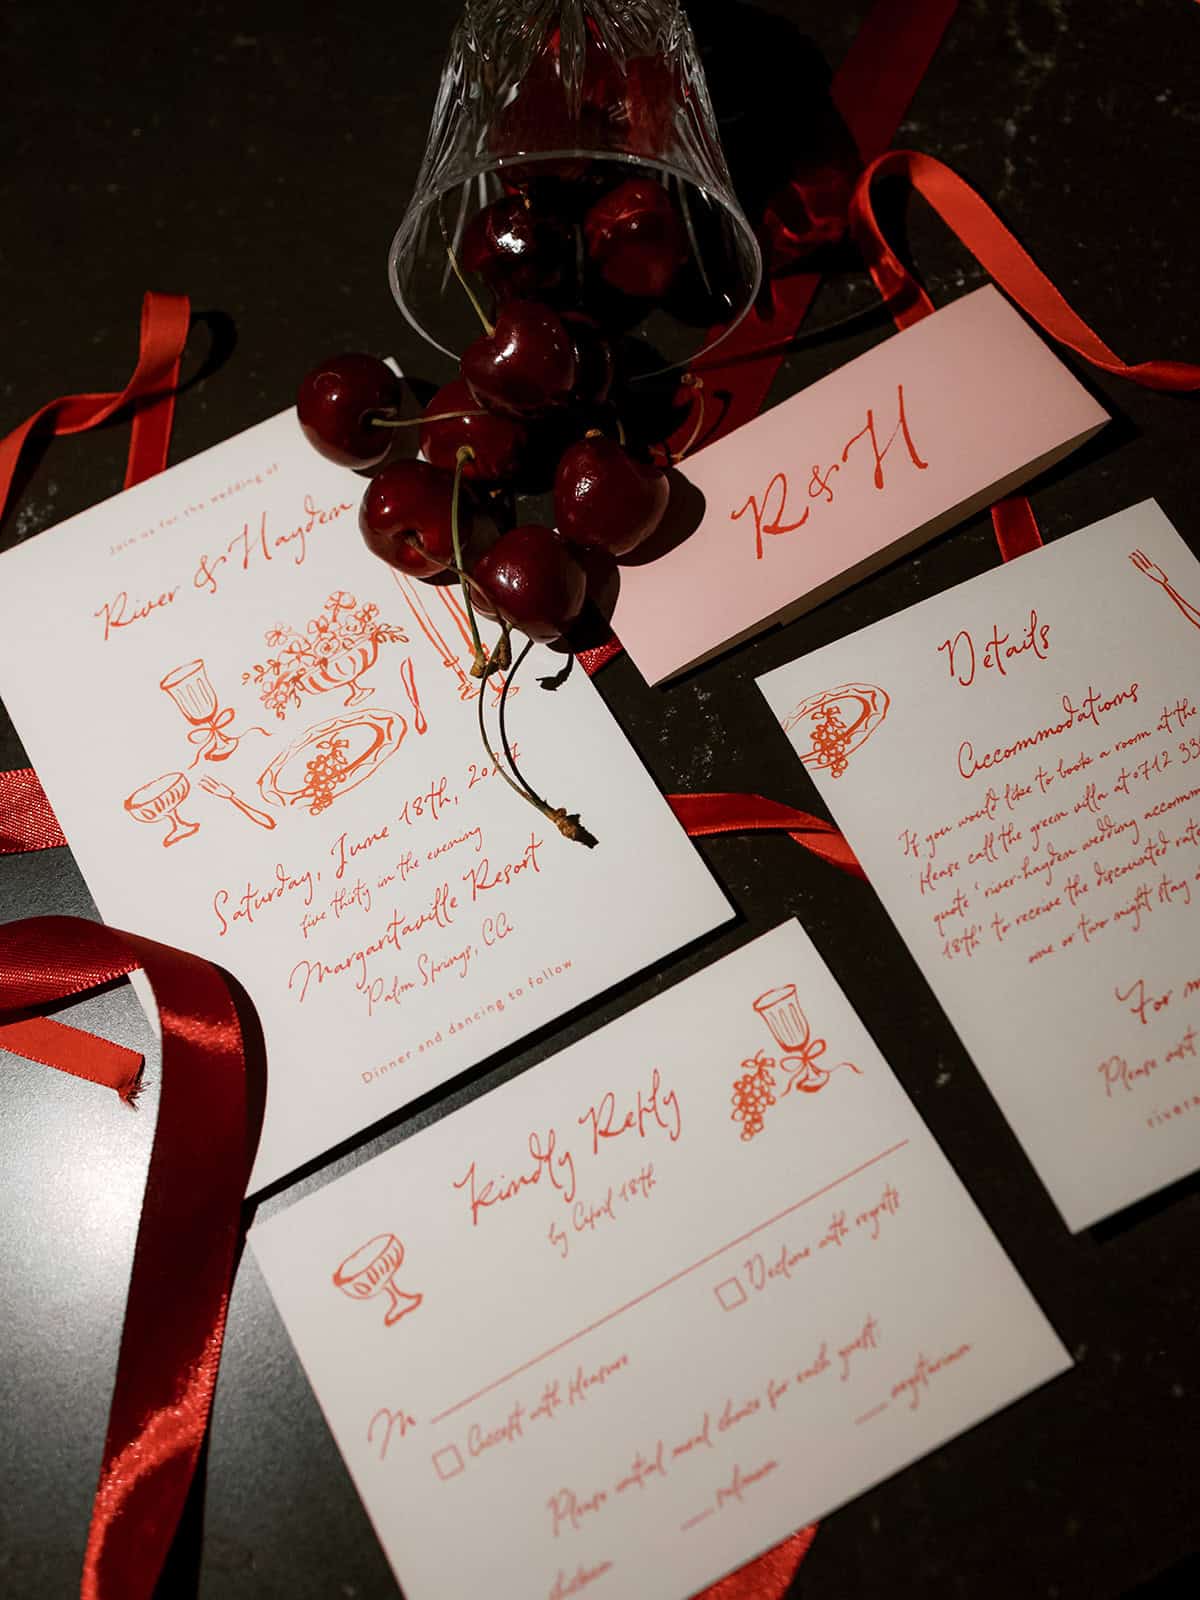 Join us for the wedding of
River & Hayden
Saturday, June 18th,
five thirty in the evening
Margaritaville Resort
Palm Springs, CA
Dinner and dancing to follow
R & H
Details
Accommodations
If you would like to book a room at the
Please call the green villa at 0712 33
quote 'river-hayden wedding accomm
18th' to receive the discounted rate
one or two night stay
For m
Please visit
rivera
Kindly Reply
by April 18th
M
Accept with pleasure
Decline with regrets
Please initial meal choice for each guest.
chicken
salmon
vegetarian